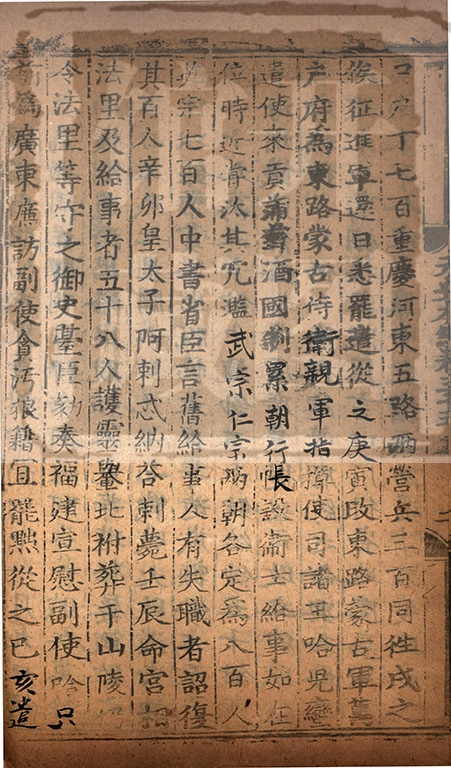 口户丁七百重慶河東五路兩營兵三百同徃戍之
俟征進軍還日悉罷遣從之庚寅改東路蒙古軍萬
户府為東路蒙古侍衛親軍指揮使司諸王哈兒蠻
遣使來貢蒲萄酒國制累朝行帳設衛士給事如在
位時近嘗汰其冗濫武宗仁宗兩朝各定為八百人
英宗七百人中書省臣言舊給事人有失職者詔復
其百人辛卯皇太子阿剌忒納荅剌薨壬辰命宮相
法里及給事者五十八人護靈轝北祔葬于山陵仍
令法里等守之御史臺臣劾奏福建宣慰副使哈只
前為廣東廉訪副使貪汚狼籍宜罷黜從之己亥遣